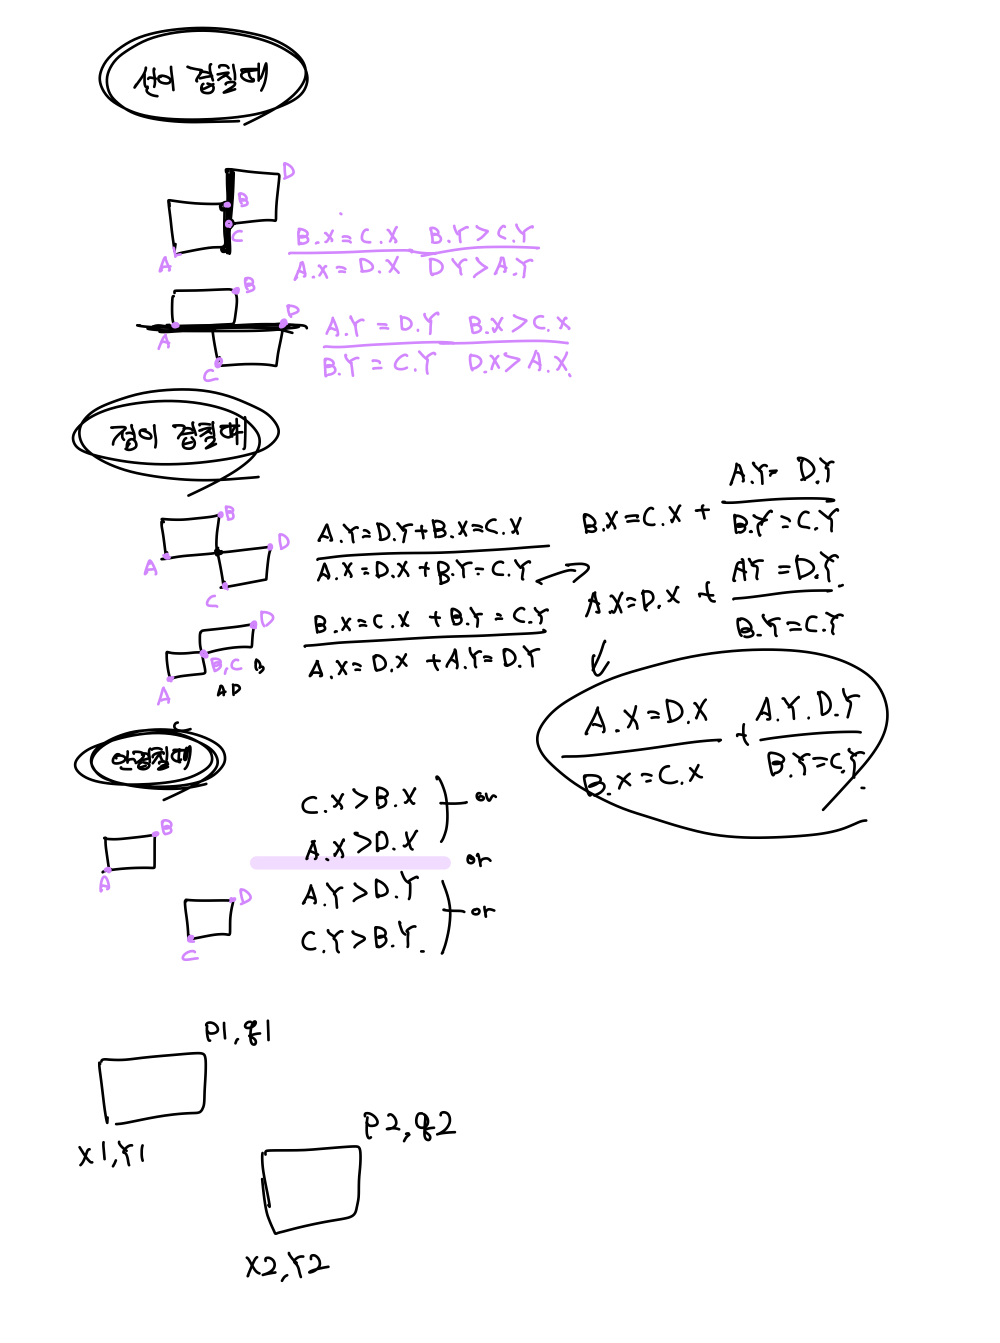 선이 겹칠때
D
B
C
A
B.X = C.X B.Y > C.Y
A.X = D.X D Y > A.Y
B
D
A
C
A.Y = D.Y B.X > C.X
B.Y = C.Y D.X > A.X.
점이 겹칠때
B
D
A
C
A.Y = D.Y + B.X = C.X
A.X = D.X + B.Y = C.Y
B.X = C.X +
A.Y = D.Y
B.Y = C.Y
A.X = D.X +
A Y = D.Y.
B.Y = C.Y
D
B, C B
A
A D
B.X = C.X + B.Y = C.Y
A.X = D.X + A.Y = D.Y
A.X = D.X + A.Y. D.Y
B.X = C.X B.Y = C.Y.
C
안겹칠때
B
A
D
C
C.X > B.X
or
A.X > D.X
or
A.Y > D.Y
or
C.Y > B.Y.
P1, q1
X1, Y1
P2, q2
X2, Y2